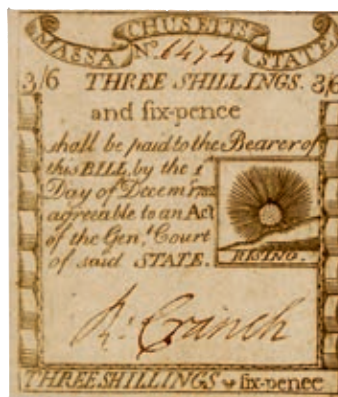 MASSACHUSETTS STATE
No. 1474
3/6 THREE SHILLINGS. 3/6
and six-pence
shall be paid to the Bearer of
this BILL, by the 1
Day of Decemr. 1782
agreeable to an Act
of the Genl. Court
of said STATE.
RISING.
R: Cranch
THREE SHILLINGS & six-pence